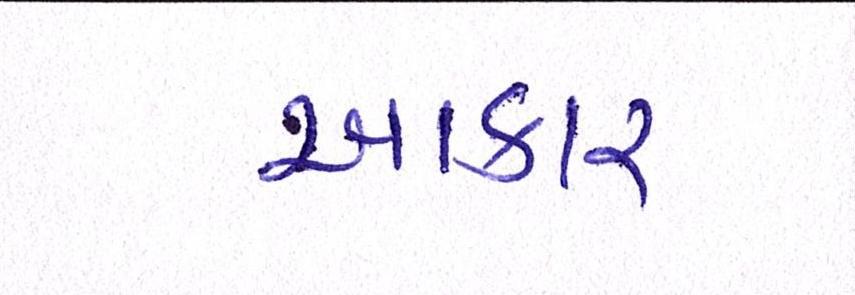 આકાર